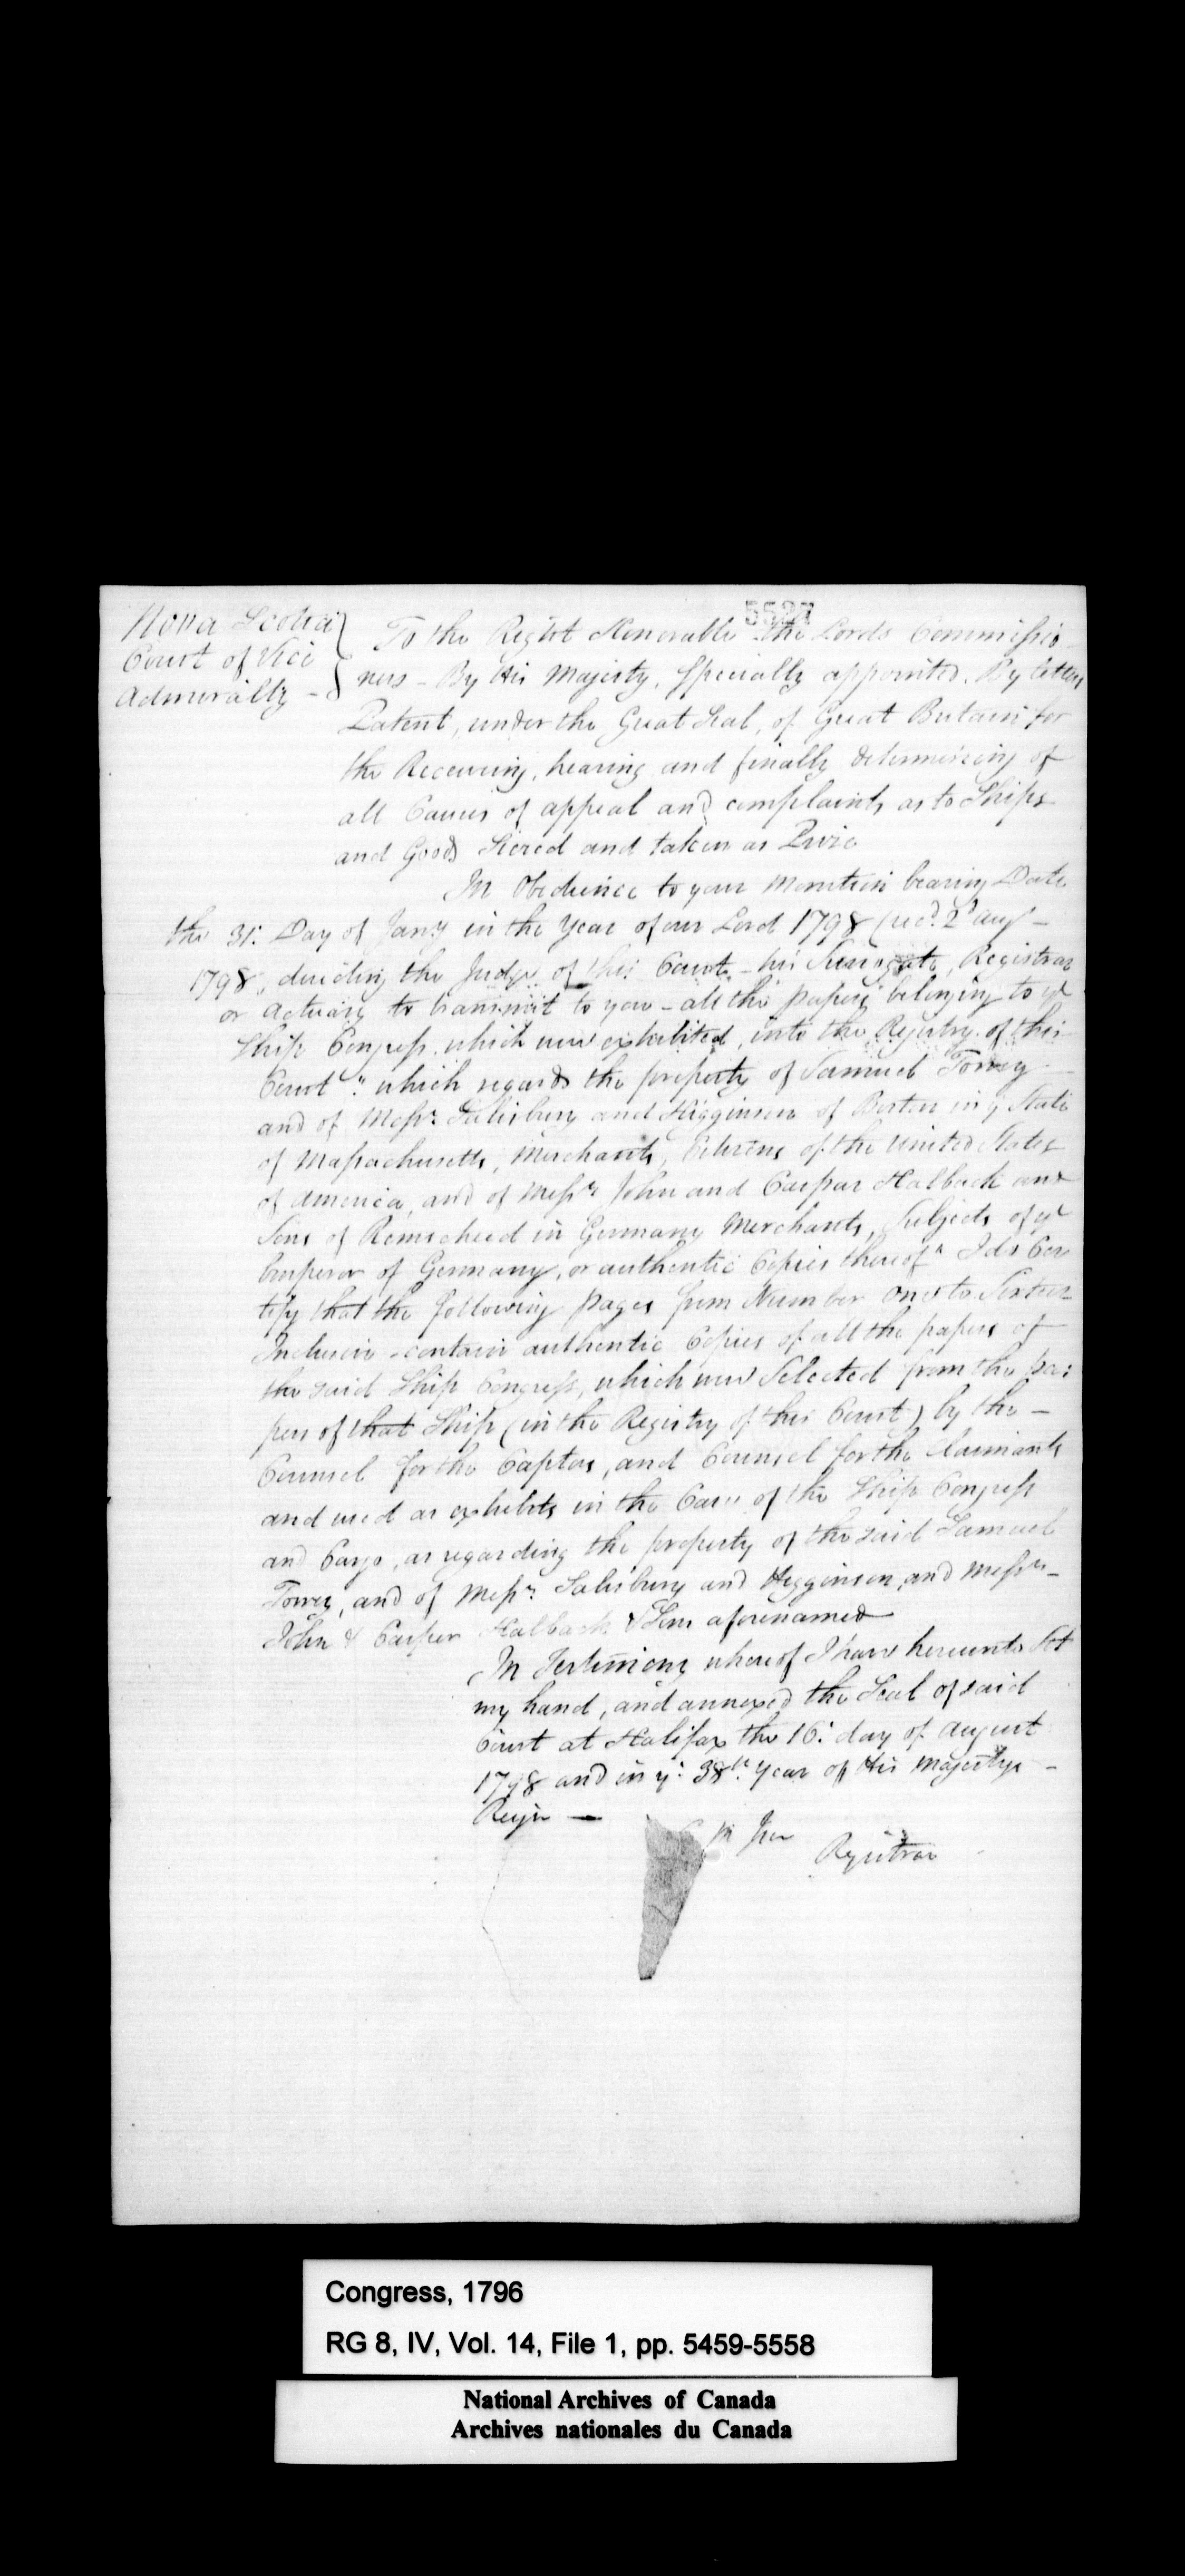 5527
Nova Scotia
Court of Vice
Admiralty -
To the Right Honorable the Lords Commissio-
ners - By His Majesty, Specially appointed, By letters
Patent, under the Great Seal, of Great Britain for
the Receiving, hearing and finally determining of
all Causes of appeal and complaints as to Ships
and Goods Seized and taken as Prize
In Obedience to your Monition bearing Date
the 31st Day of Jany in the Year of our Lord 1798 (recd 2d augt -
1798, directing the Judge of this Court - his Surrogate, Registrar
or Actuary to transmit to you - all the papers belonging to ye
Ship Congress, which were exhibited, into the Registry of this
Court " which regards the property of Samuel Torrey
and of Messrs Salisbury and Higginson of Boston in ye State
of Massachusetts, Merchants, Citizens of the United States
of America, and of Messrs John and Caspar Halbach and
Sons of Remscheed in Germany Merchants, Subjects of ye
Emperor of Germany, or authentic Copies thereof " I do Cer
tify that the following pages from Number one to Sixteen
Inclusive - contain authentic Copies of all the papers of
the said Ship Congress, which were Selected from the pa:
pers of that Ship (in the Registry of this Court) by the -
Counsel for the Captors, and Counsel for the Claimants
and used as exhibits in the Case of the Ship Congress
and Cargo, as regarding the property of the said Samuel
Torrey, and of Messrs Salisbury and Higginson, and Messrs -
John & Casper Halbach & Sons aforenamed
In Testimony whereof I have hereunto Set
my hand, and annexed the Seal of said
Court at Halifax the 16: day of August
1798 and in ye 38th Year of His Majestys -
Reign
Registrar
Congress, 1796
RG 8, IV, Vol. 14, File 1, pp. 5459-5558
National Archives of Canada
Archives nationales du Canada